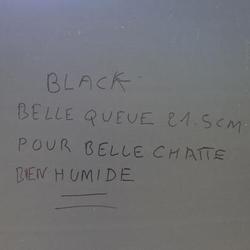 BLACK.
BELLE QUEUE 21.5CM
POUR BELLE CHATTE
BIEN HUMIDE